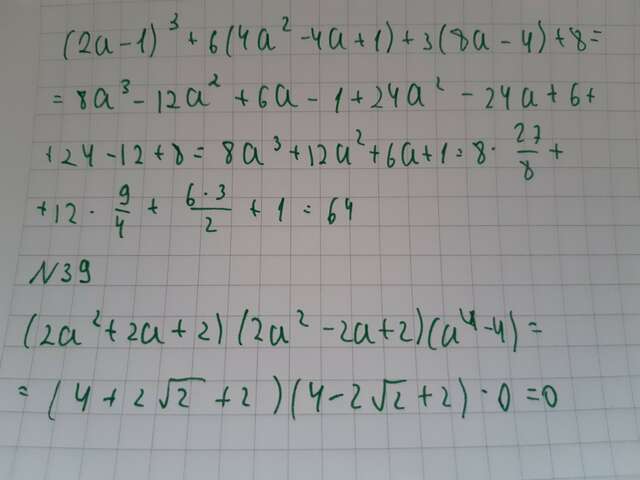 (2a-1)³ + 6(4a² -4a+1)+3(8a-4)+8=
= 8a³ - 12a² + 6a - 1 + 24a² - 24a + 6 +
+24-12+8 = 8a³+12a²+6a+1 = 8 · 27/8 +
+12 · 9/4 + (6·3)/2 + 1 = 64
N39
(2a²+2a+2)(2a²-2a+2)(a⁴-4)=
= (4+2√2+2)(4-2√2+2)·0=0